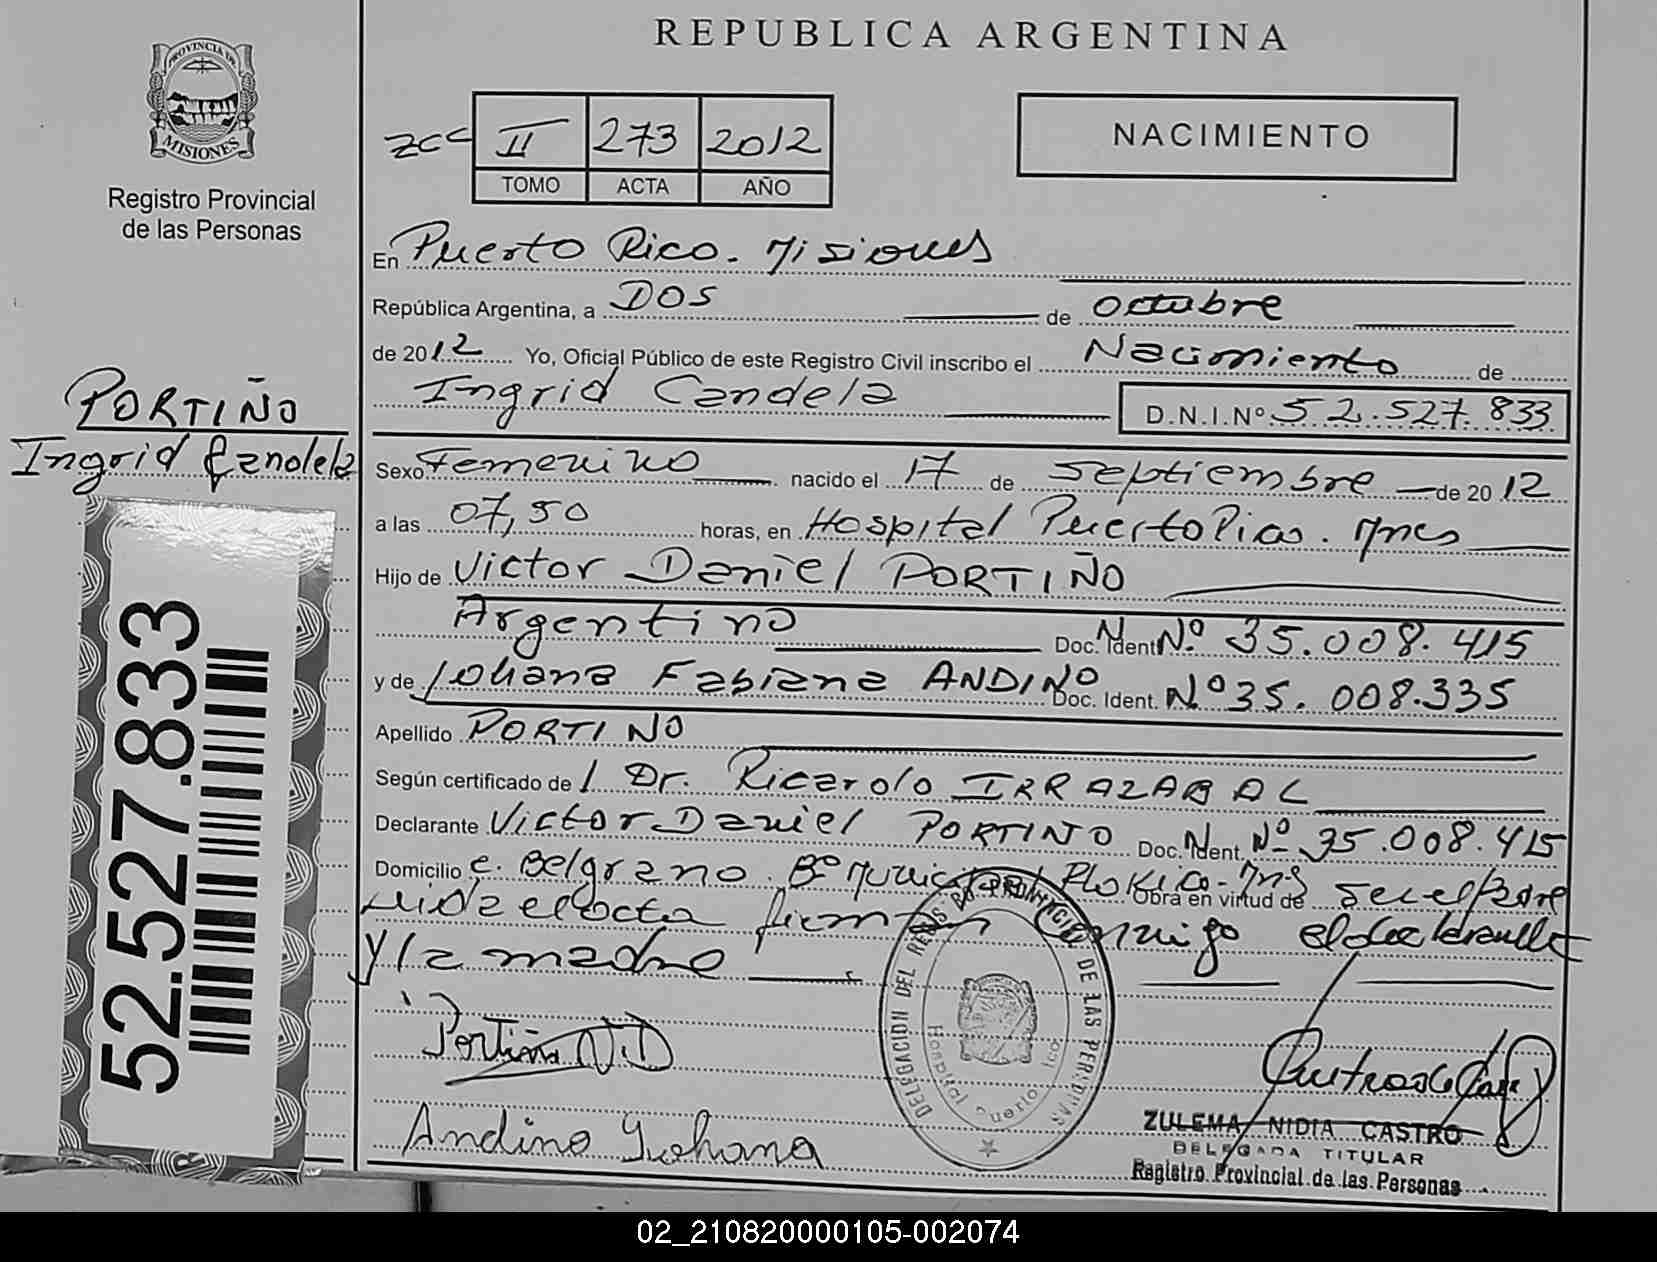 REPUBLICA ARGENTINA
PROVINCIA DE
MISIONES
Registro Provincial
de las Personas
II 273 2012
TOMO ACTA AÑO
NACIMIENTO
En Puerto Rico. Misiones
República Argentina, a DOS de octubre
de 2012 Yo, Oficial Público de este Registro Civil inscribo el Nacimiento de
Ingrid Candela D.N.I.Nº 52.527.833
PORTIÑO
Ingrid Candela
Sexo Femenino nacido el 17 de Septiembre de 2012
a las 07,50 horas, en Hospital Puerto Rico. Mnes
Hijo de Victor Daniel PORTIÑO
Argentino Doc. Ident. Nº 35.008.415
y de Johana Fabiana ANDINO Doc. Ident. Nº 35.008.335
Apellido PORTIÑO
Según certificado de Dr. Ricardo IRRAZABAL
Declarante Victor Daniel PORTINO Doc. Ident. Nº 35.008.415
Domicilio C. Belgrano. Bº Municipal Pto Rico - Mns
Obra en virtud de
el acta firman Conmigo el declarante
y la madre
52.527.833
Portiño V.D
DELEGACION DEL REG. PROVINCIAL DE LAS PERSONAS
Hospital Puerto Rico
Andino Johana
ZULEMA NIDIA CASTRO
DELEGADA TITULAR
Registro Provincial de las Personas
02_210820000105-002074